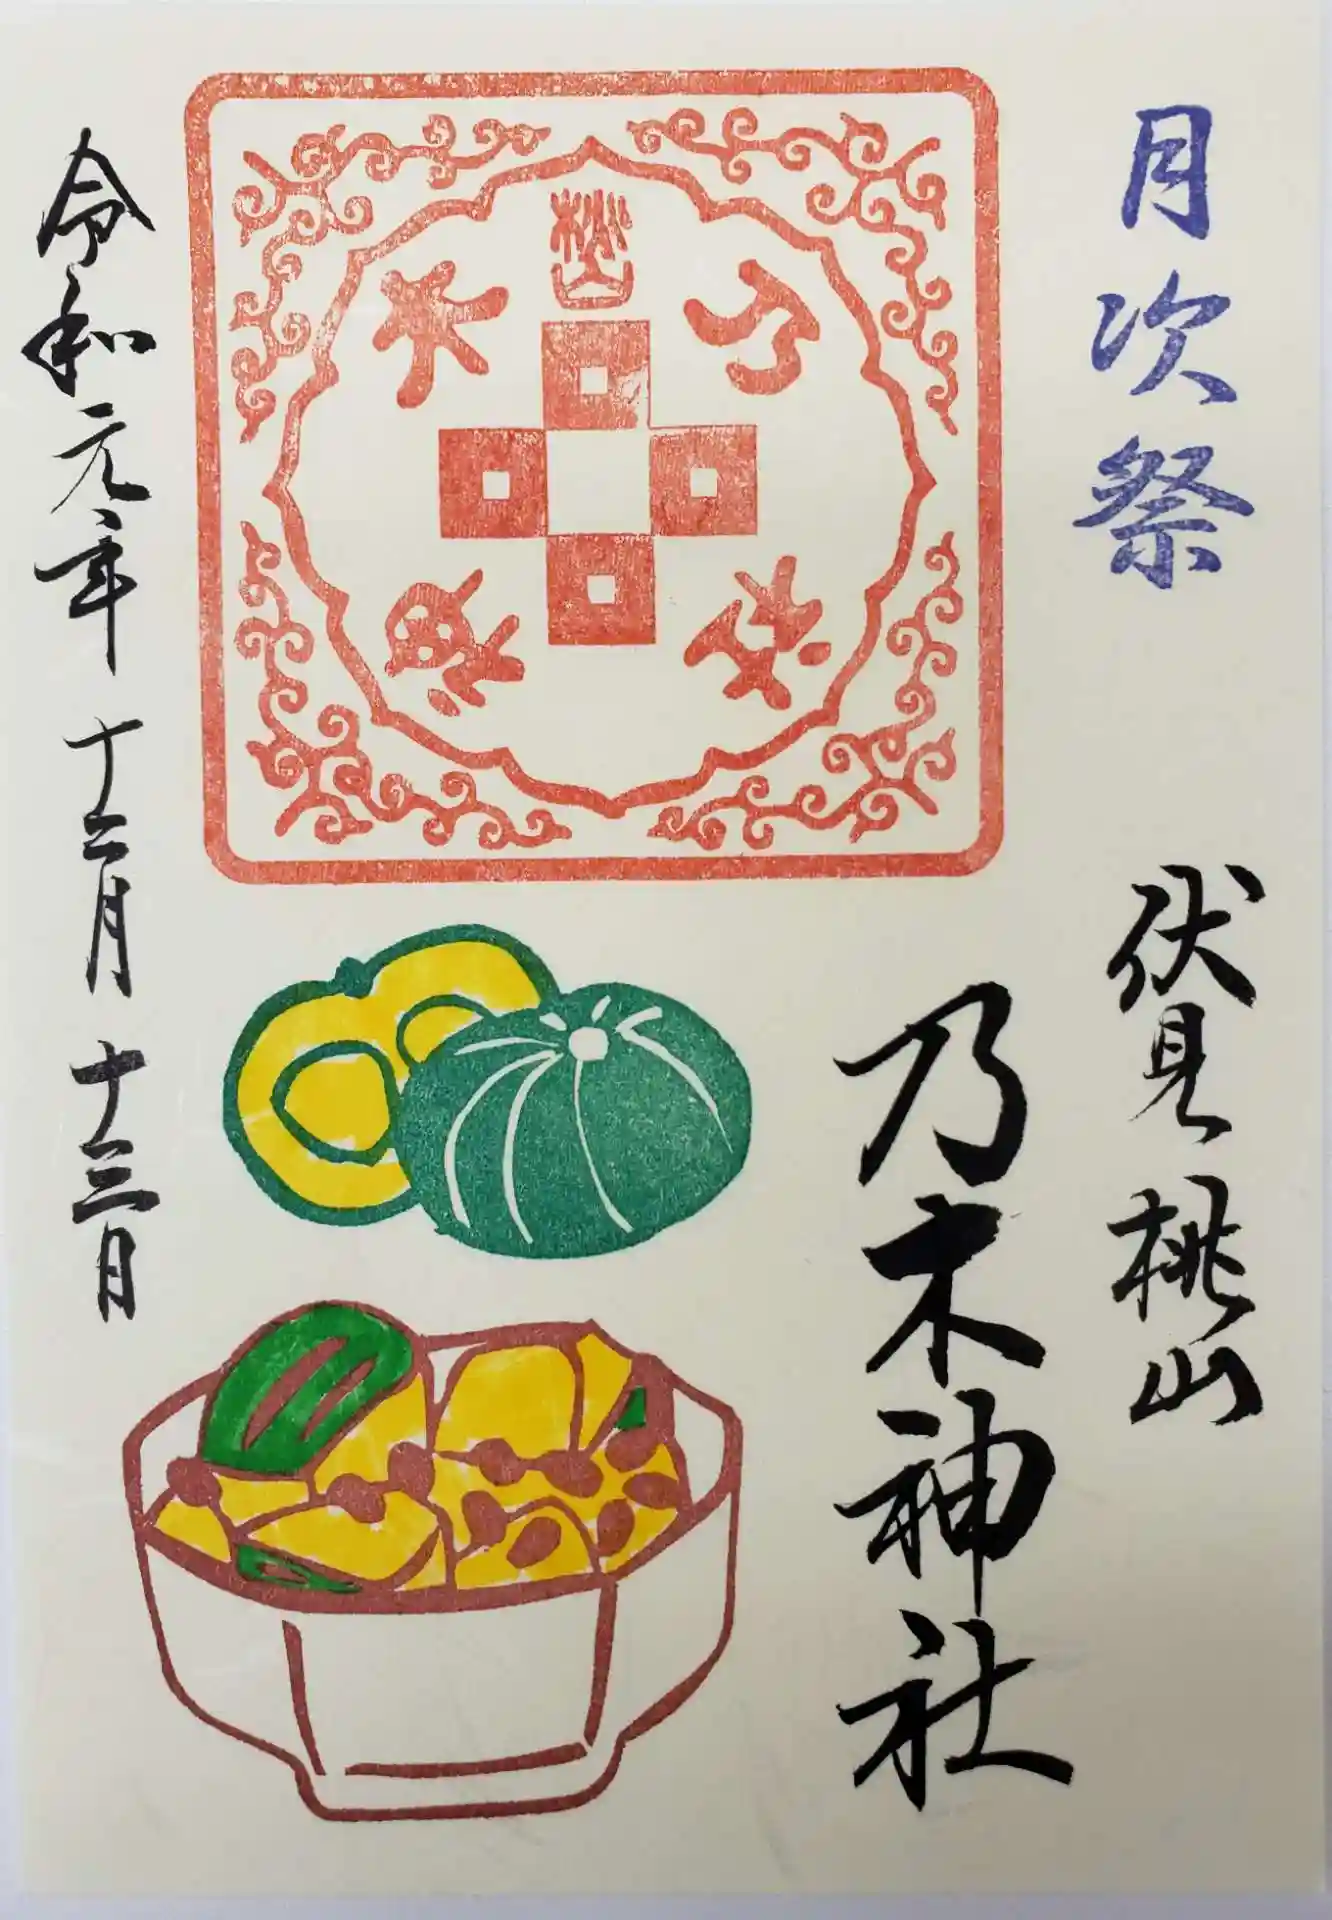 月次祭
伏見桃山
乃木神社
桃山
乃木
神社
令和元年十二月十三日